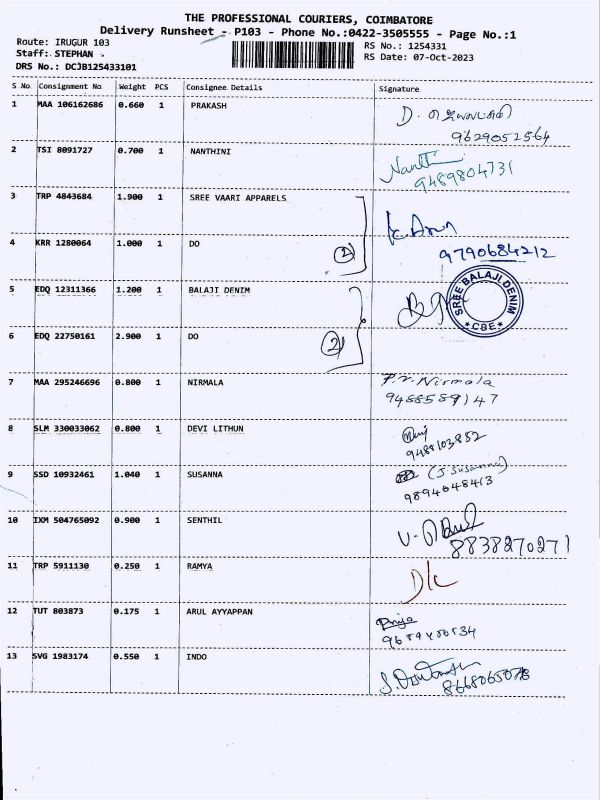 THE PROFESSIONAL COURIERS, COIMBATORE
Delivery Runsheet - P103 - Phone No.:0422-3505555 - Page No.:1
Route: IRUGUR 103
RS No.: 1254331
Staff: STEPHAN
RS Date: 07-Oct-2023
DRS No.: DCJB125433101
S No Consignment No Weight PCS Consignee Details Signature
1 MAA 106162686 0.660 1 PRAKASH
9629052564
2 TSI 8091727 0.700 1 NANTHINI
9489804731
3 TRP 4843684 1.900 1 SREE VAARI APPARELS
K. Arun
4 KRR 1280064 1.000 1 DO 2 9790684212
5 EDQ 12311366 1.200 1 BALAJI DENIM
SREE BALAJI DENIM
*CBE*
6 EDQ 22750161 2.900 1 DO 2
7 MAA 295246696 0.800 1 NIRMALA P.V. Nirmala
9488589147
8 SLM 330033062 0.800 1 DEVI LITHUN
9488103852
9 SSD 10932461 1.040 1 SUSANNA (J. Susanna)
9894648413
10 IXM 504765092 0.900 1 SENTHIL
8838270271
11 TRP 5911130 0.250 1 RAMYA D/C
12 TUT 803873 0.175 1 ARUL AYYAPPAN
13 SVG 1983174 0.550 1 INDO